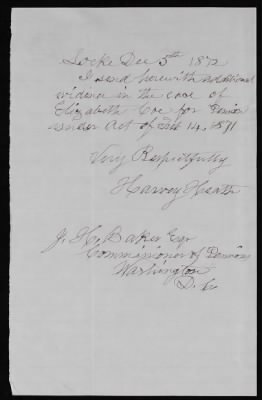 Locke Dec 5th 1872
I send herewith additional
evidence in the case of
Elizabeth Coe for Pension
under Act of Feb 14, 1871
Very Respectfully
Harvey Heath
J. H. Baker Esqr
Commissioner of Pensions
Washington
D. C.